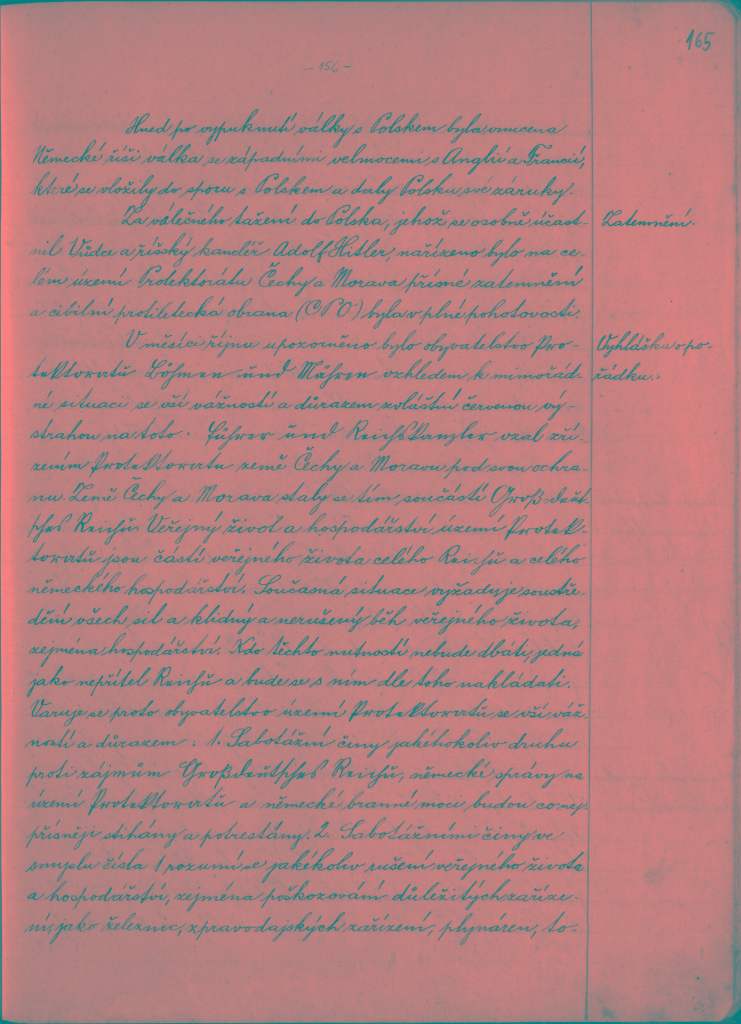 165
- 156 -
Hned po vypuknutí války s Polskem byla vnucena
Německé říši válka se západními velmocemi s Anglií a Francií,
které se vložily do sporu s Polskem a daly Polsku své záruky.
Za válečného tažení do Polska, jehož se osobně účast-
Zatemnění.
nil Vůdce a říšský kancléř Adolf Hitler, nařízeno bylo na ce-
lém území Protektorátu Čechy a Morava přísné zatemnění
a cibilní protiletecká obrana (CPO) byla v plné pohotovosti.
V měsíci říjnu upozorněno bylo obyvatelstvo Pro-
Vyhláška o po-
tektoratů Böhmen und Mähren vzhledem k mimořád-
řádku.
né situaci se vší vážností a důrazem zvláštní červenou vý-
strahou na toto: Führer und Reichskanzler vzal zří-
zením Protektoratu země Čechy a Moravu pod svou ochra-
nu. Země Čechy a Morava staly se tím součástí Groß-deut-
sches Reichů. Veřejný život a hospodářství území Protek-
toratů jsou částí veřejného života celého Reichů a celého
německého hospodářství. Současná situace vyžaduje soustře-
dění všech sil a klidný a nerušený běh veřejného života,
zejména hospodářství. Kdo těchto nutností nebude dbáti, jedná
jako nepřítel Reichů a bude se s ním dle toho nakládati.
Varuje se proto obyvatelstvo území Protektoratů se vší váž-
ností a důrazem: 1. Sabotážní činy jakéhokoliv druhu
proti zájmům Großdeutsches Reichů, německé správy na
území Protektoratů a německé branné moci budou co nej-
přísněji stihány a potrestány. 2. Sabotážními činy ve
smyslu čísla 1 rozumí se jakékoliv rušení veřejného života
a hospodářství, zejména poškozování důležitých zaříze-
ní, jako železnic, zpravodajských zařízení, plynáren, to-